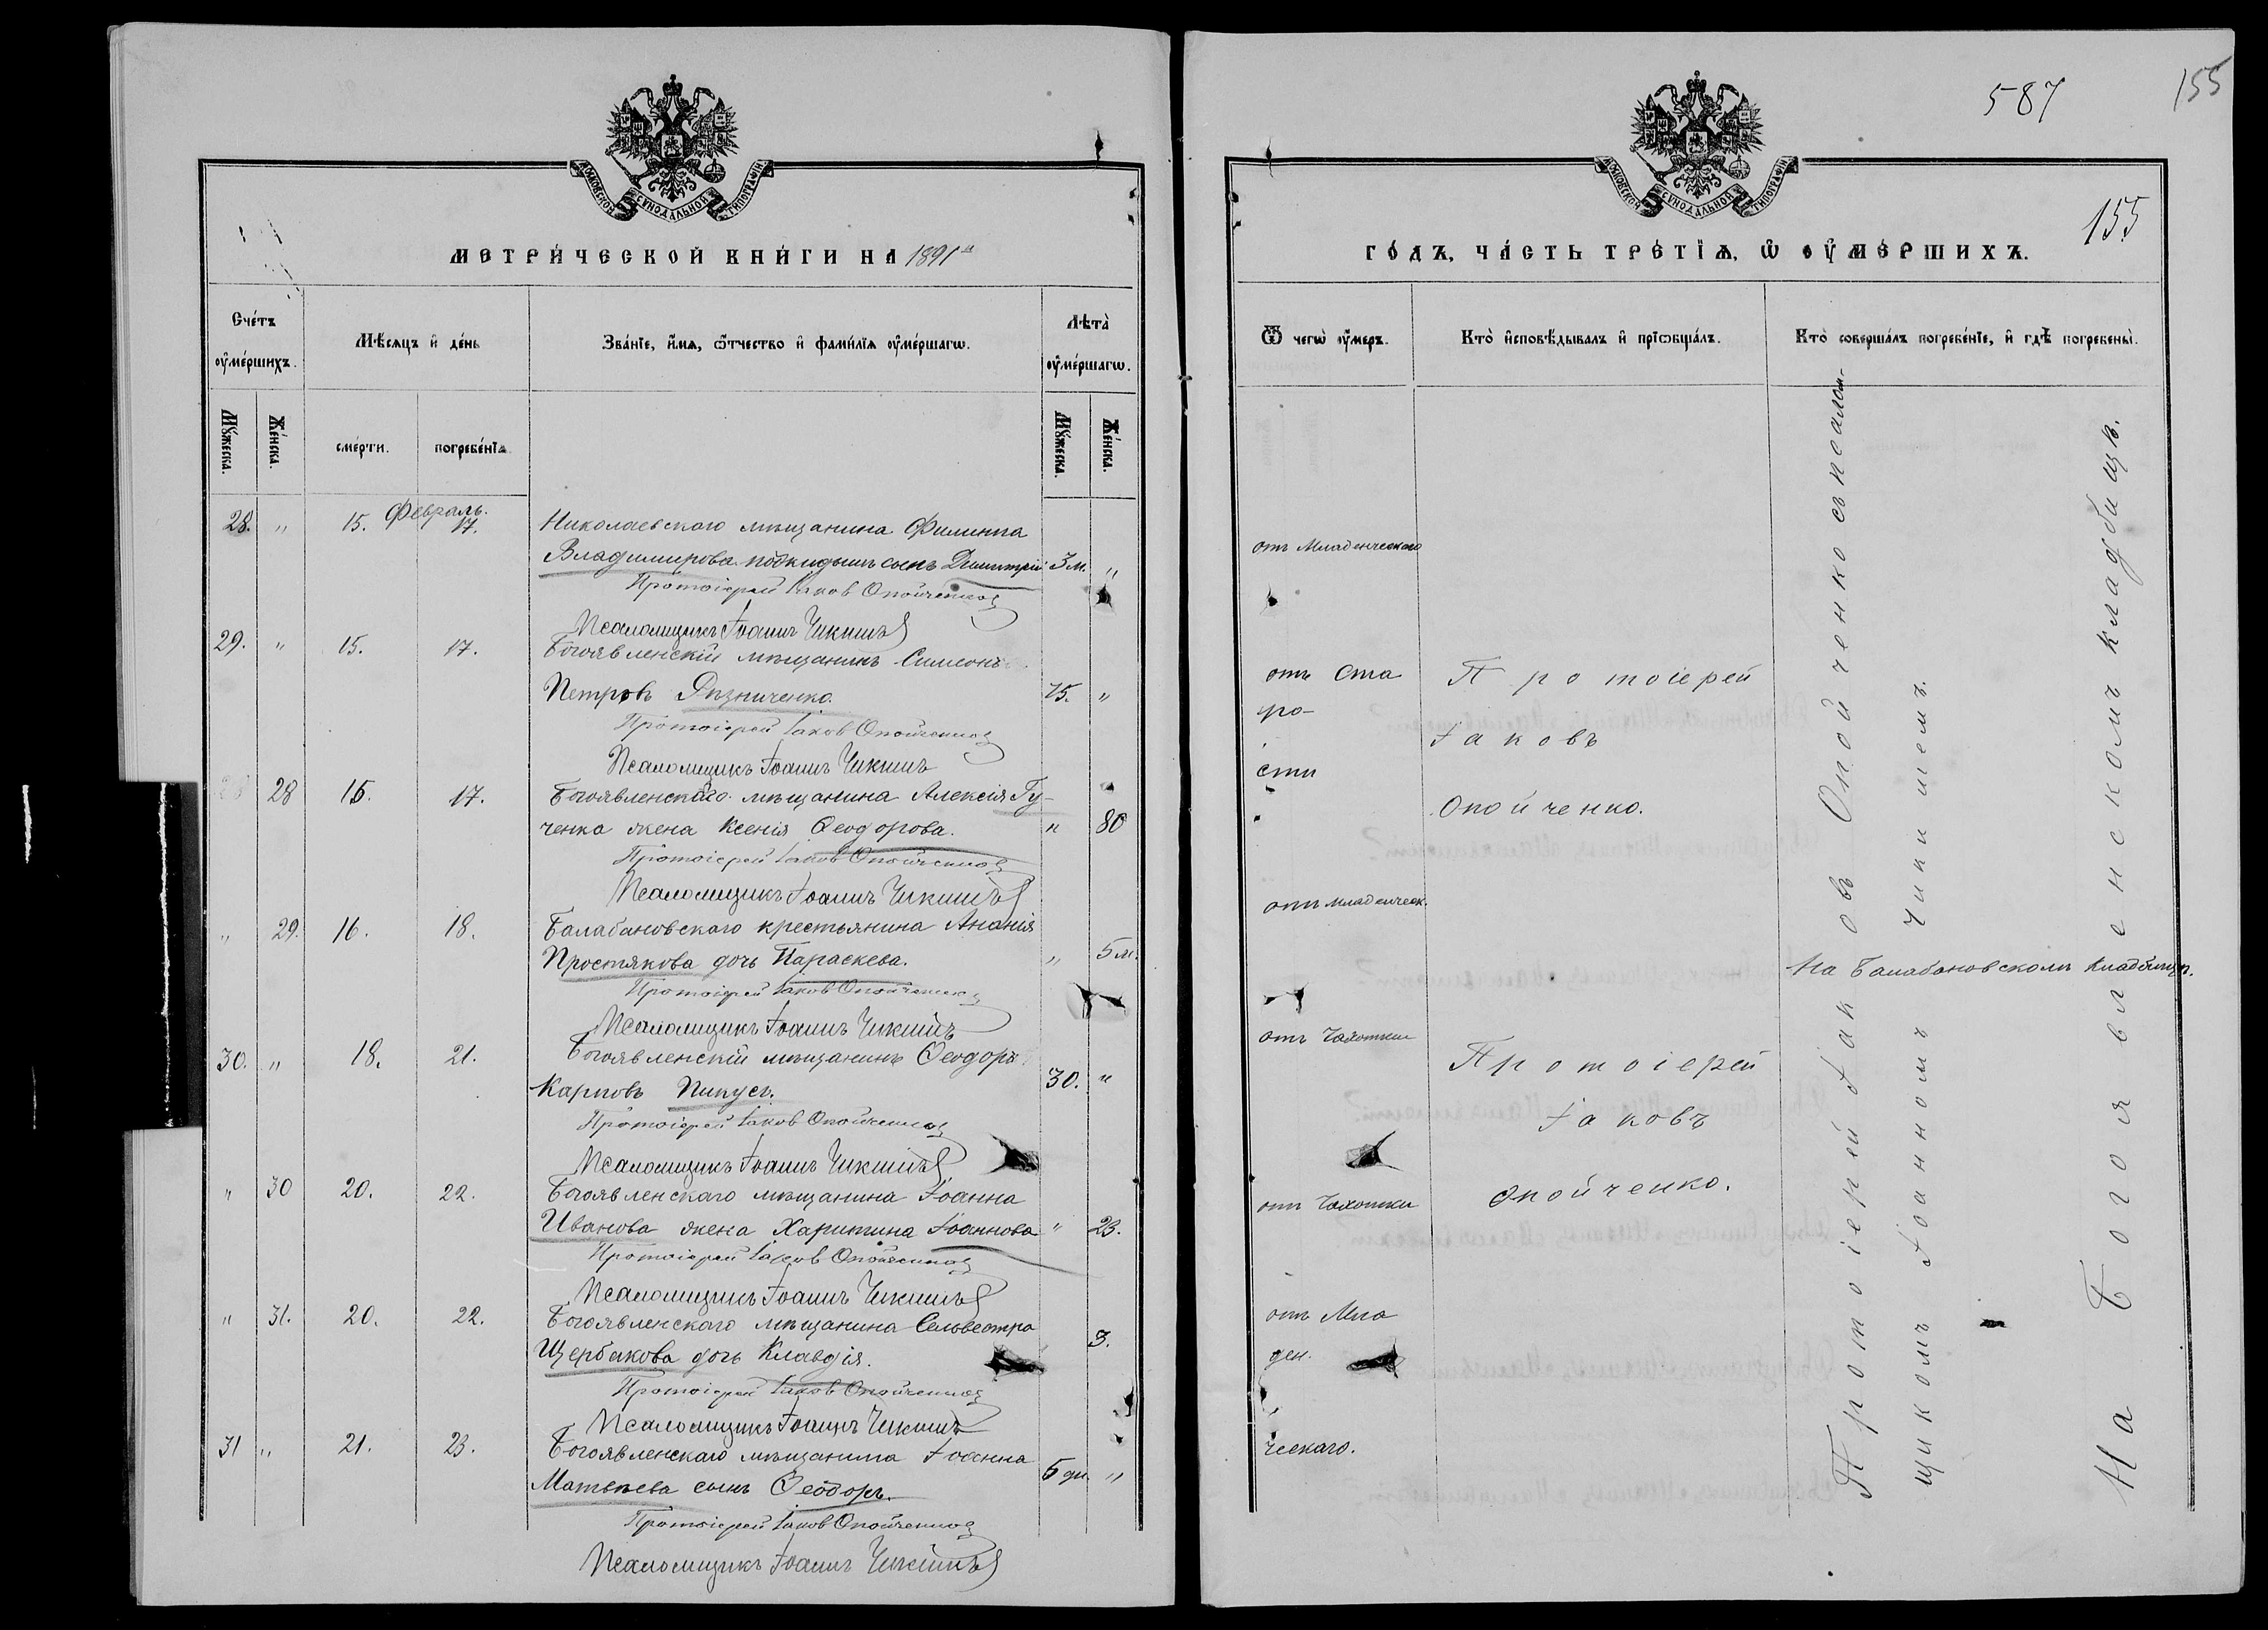 МОСКОВСКОЙ СѴНОДАЛЬНОЙ ТИПОГРАФІИ
МЕТРИ́ЧЕСКОЙ КНИ́ГИ НА 1891й
Сче́тъ ᲂу҆ме́ршихъ.
Мѣ́сяцъ и҆ де́нь
Зва́нїе, и҆́мя, ѻ҆́тчество и҆ фами́лїя ᲂу҆ме́ршагѡ.
Лѣта̀ ᲂу҆ме́ршагѡ.
Мꙋ́жеска.
Же́нска.
сме́рти.
погребе́нїѧ
Мꙋ́жеска.
Же́нска.
Февраль.
28. " 15. 17. Николаевского мѣщанина Филиппа
Владимирова подкидышъ сынъ Димитрій 3 м. "
Протоіерей Іаков Опойченко
Псаломщикъ Іоаннъ Чикишъ
29. " 15. 17. Богоявленскій мѣщанинъ Симеонъ
Петровъ Рѣзниченко. 75. "
Протоіерей Іаков Опойченко
Псаломщикъ Іоаннъ Чикишъ
28 15. 17. Богоявленскаго мѣщанина Алексія Гу-
ченка жена Ксенія Ѳеодорова. " 80
Протоіерей Іаков Опойченко
Псаломщикъ Іоаннъ Чикишъ
" 29. 16. 18. Балабановскаго крестьянина Ананія
Простякова дочь Параскева. " 5 м.
Протоіерей Іаков Опойченко
Псаломщикъ Іоаннъ Чикишъ
30. " 18. 21. Богоявленскій мѣщанинъ Ѳеодоръ
Карповъ Пикусъ. 30. "
Протоіерей Іаков Опойченко
Псаломщикъ Іоаннъ Чикишъ
" 30 20. 22. Богоявленскаго мѣщанина Іоанна
Иванова жена Харитина Іоаннова " 23.
Протоіерей Іаков Опойченко
Псаломщикъ Іоаннъ Чикишъ
" 31. 20. 22. Богоявленскаго мѣщанина Сельвестра
Щербакова дочь Клавдія. 3.
Протоіерей Іаков Опойченко
Псаломщикъ Іоаннъ Чикишъ
31 " 21. 23. Богоявленскаго мѣщанина Іоанна
Матвѣева сынъ Ѳеодоръ. 5 дн. "
Протоіерей Іаков Опойченко
Псаломщикъ Іоаннъ Чикишъ
587
155
155
МОСКОВСКОЙ СѴНОДАЛЬНОЙ ТИПОГРАФІИ
ГО́ДЪ, ЧА́СТЬ ТРЕ́ТЇѦ, Ѡ҆ ОУ҆МЕ́РШИХЪ.
Ѿ чегѡ̀ ᲂу҆́меръ.
Кто̀ и҆сповѣ́дывалъ и҆ прїѡбща́лъ.
Кто̀ соверша́лъ погребе́нїе, и҆ гдѣ̀ погребены̀.
отъ Младенческаго
отъ Ста
ро-
сти
Протоіерей
Іаковъ
Опойченко.
отъ младенческ.
На Балабановскомъ кладбищѣ.
отъ Чахотки
Протоіерей
Іаковъ
Опойченко.
отъ Чахотки
отъ Мла
ден
ческаго.
Протоіерей Іаковъ Опойченко съ псалом-
щикомъ Іоанномъ Чикишемъ.
На Богоявленскомъ кладбищѣ.